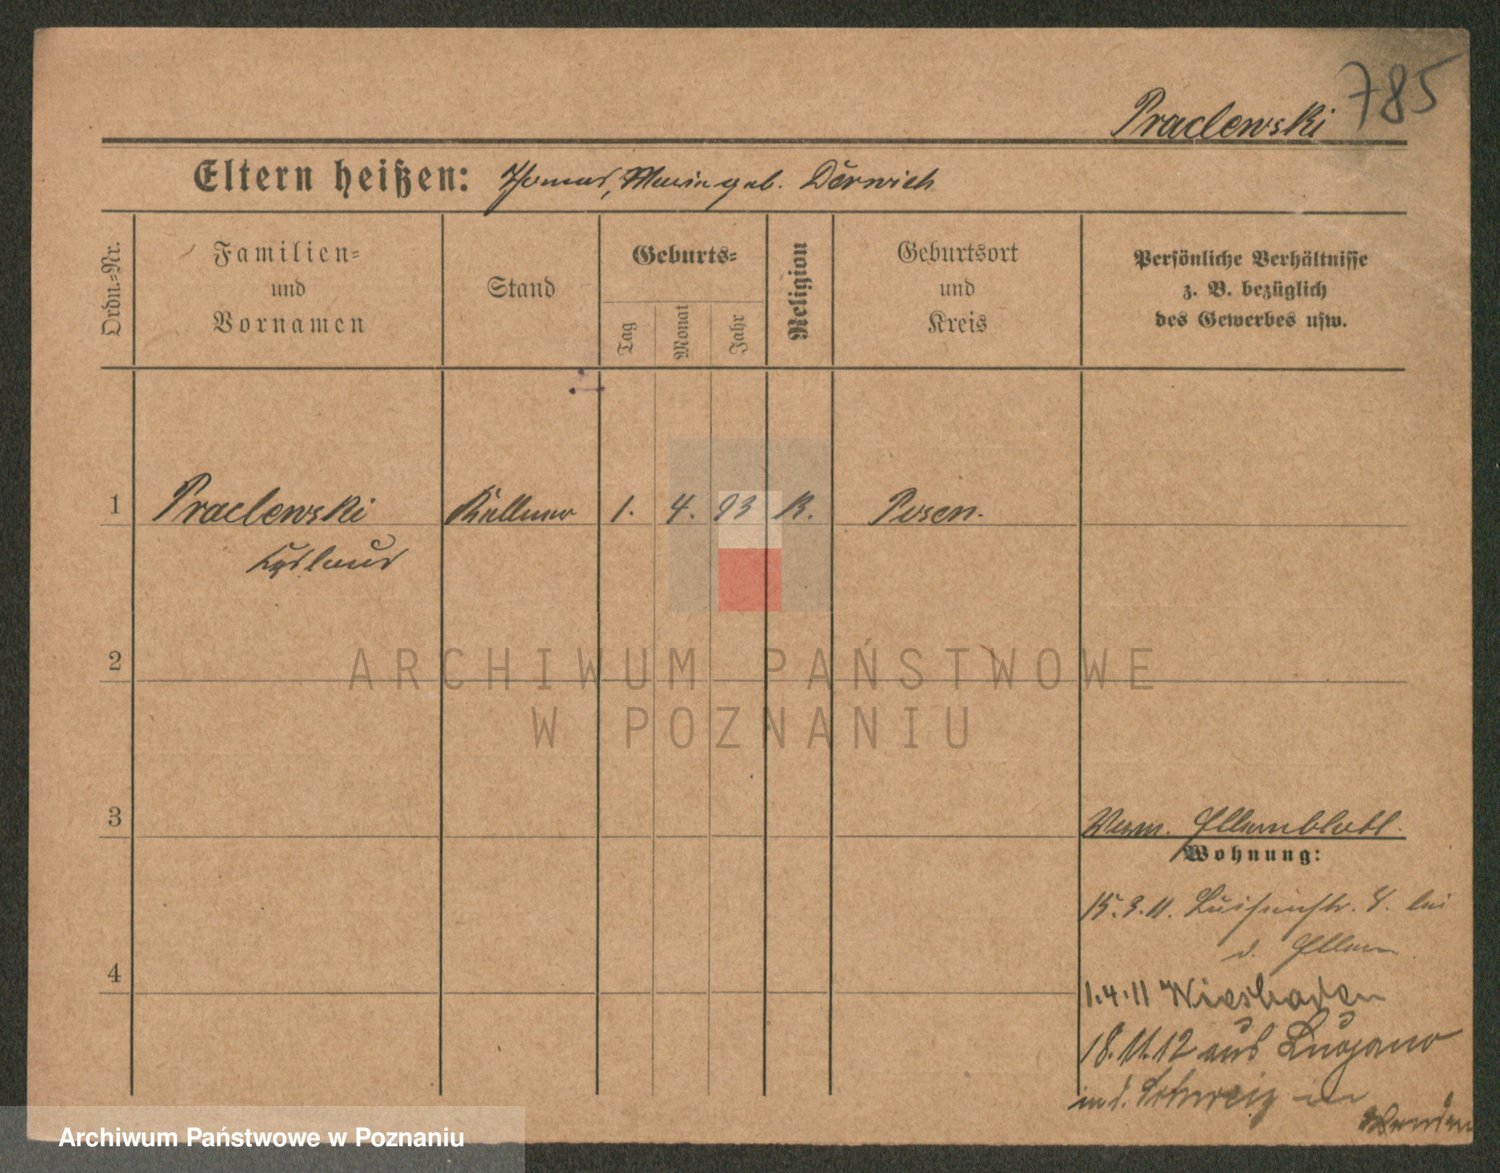 785
Praclewski
Eltern heißen: Thomas, Maria geb. Derwich
Ordn.-Nr.
Familien-
und
Vornamen
Stand
Geburts-
Tag
Monat
Jahr
Religion
Geburtsort
und
Kreis
Persönliche Verhältnisse
z. B. bezüglich
des Gewerbes usw.
1 Praclewski Kellner 1. 4. 93 K. Posen.
2
ARCHIWUM PAŃSTWOWE
W POZNANIU
3
Elternblatt.
Wohnung:
15.3.11. Luisenstr. 8. bei
d. Eltern
4
1.4.11 Wiesbaden
18.11.12 aus Lugano
in d. Schweiz
Wenden
Archiwum Państwowe w Poznaniu